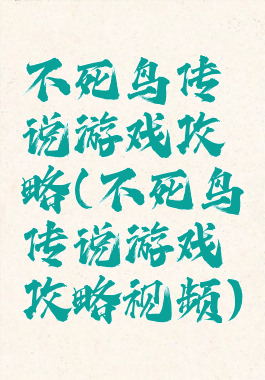 不死鸟传
说游戏攻
略(不死鸟
传说游戏
攻略视频)